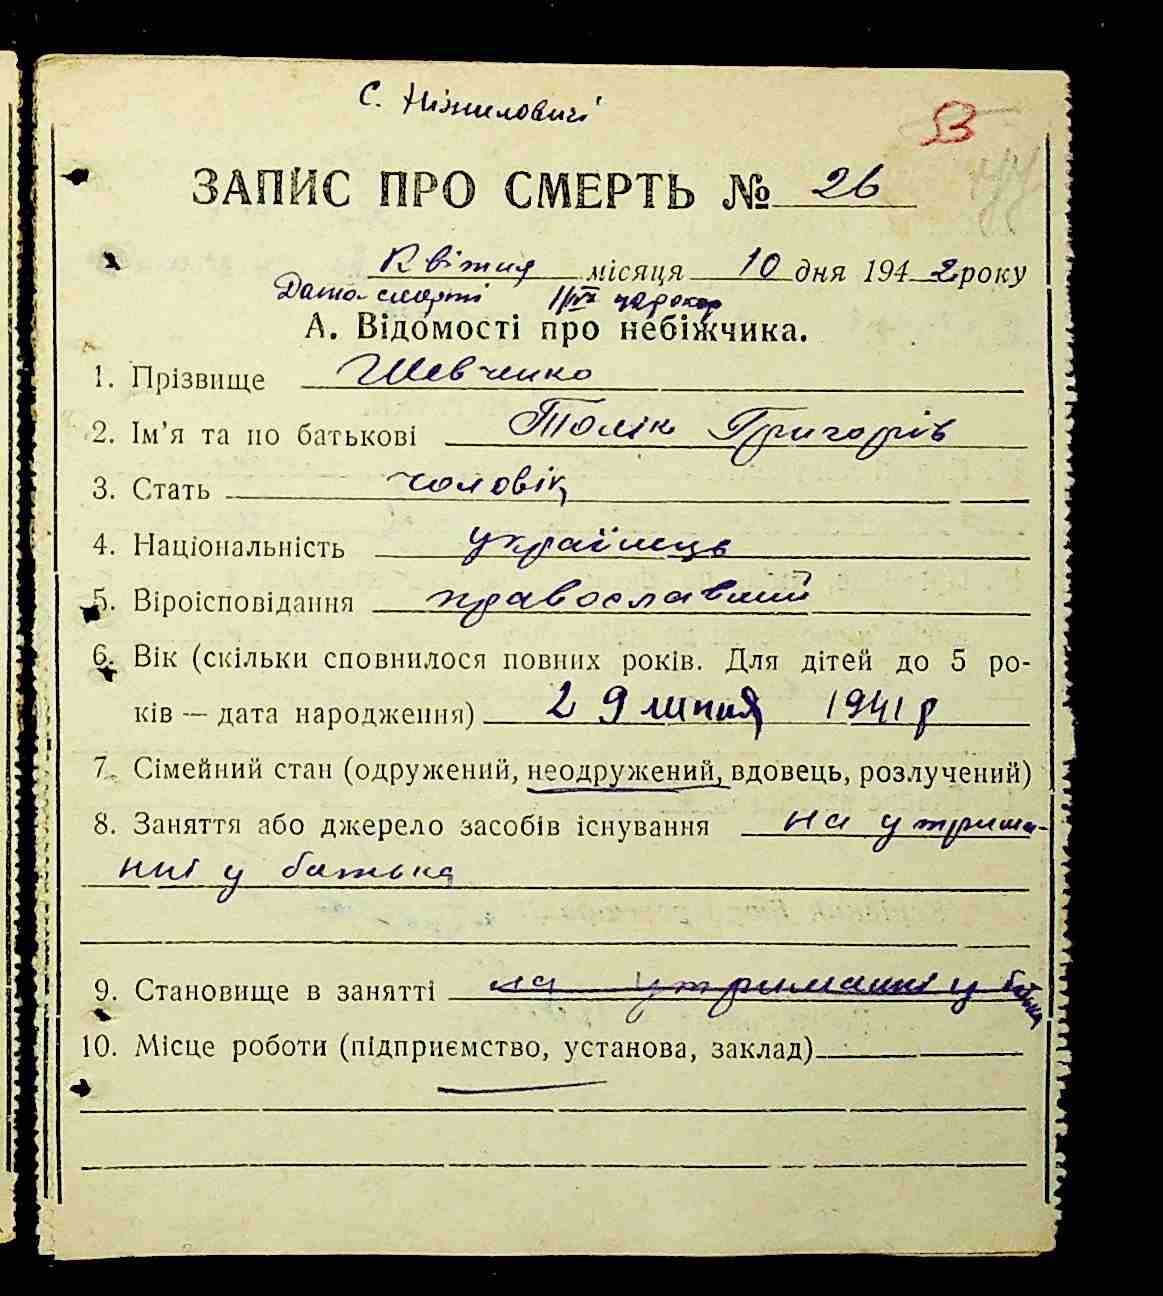 с. Ніжиловичі
ЗАПИС ПРО СМЕРТЬ № 26
Квітня місяця 10 дня 1942 року
Дата смерті 42 року
А. Відомості про небіжчика.
1. Прізвище Шевченко
2. Ім'я та по батькові Толік Григорів
3. Стать чоловік
4. Національність українець
5. Віроісповідання православний
6. Вік (скільки сповнилося повних років. Для дітей до 5 ро-
ків — дата народження) 29 липня 1941 р
7. Сімейний стан (одружений, неодружений, вдовець, розлучений)
8. Заняття або джерело засобів існування на утрима-
нні у батька
9. Становище в занятті на утриманні у батька
10. Місце роботи (підприємство, установа, заклад)